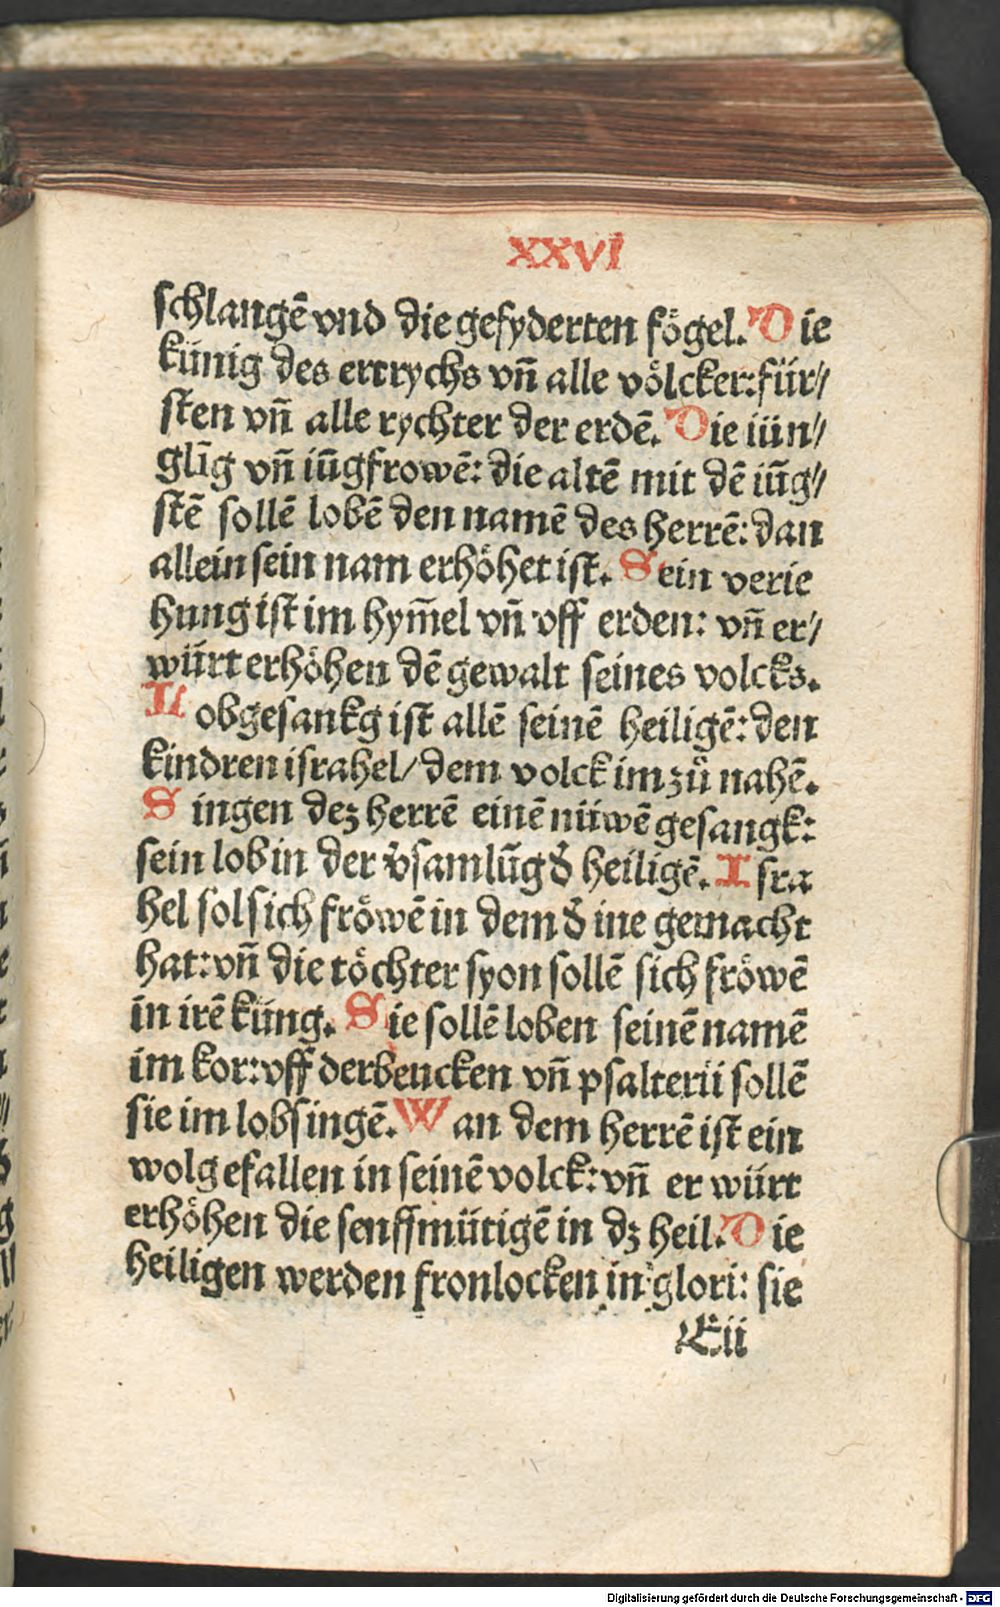 XXVI
schlangē vnd die gefyderten fögel. Die
künig des ertrychs vn̄ alle völcker: für⸗
sten vn̄ alle rychter der erdē. Die iün⸗
glīg vn̄ iūgfrowē: die altē mit dē iūg⸗
stē sollē lobē den namē des herrē: dan
allein sein nam erhöhet ist. Sein verie
hung ist im hym̄el vn̄ vff erden: vn̄ er⸗
würt erhöhen dē gewalt seines volcks.
Lobgesankg ist allē seinē heiligē: den
kindren israhel/ dem volck im zů nahē.
Singen dez herrē einē nüwē gesangk:
sein lob in der v̄samlūg d̄ heiligē. Isra
hel sol sich fröwē in dem d̄ ine gemacht
hat: vn̄ die töchter syon sollē sich fröwē
in irē küng. Sie sollē loben seinē namē
im kor: vff derbeucken vn̄ psalterii sollē
sie im lobsingē. Wan dem herrē ist ein
wolgefallen in seinē volck: vn̄ er würt
erhöhen die senffmütigē in dz heil. Die
heiligen werden fronlocken in glori: sie
Eii
Digitalisierung gefördert durch die Deutsche Forschungsgemeinschaft - DFG